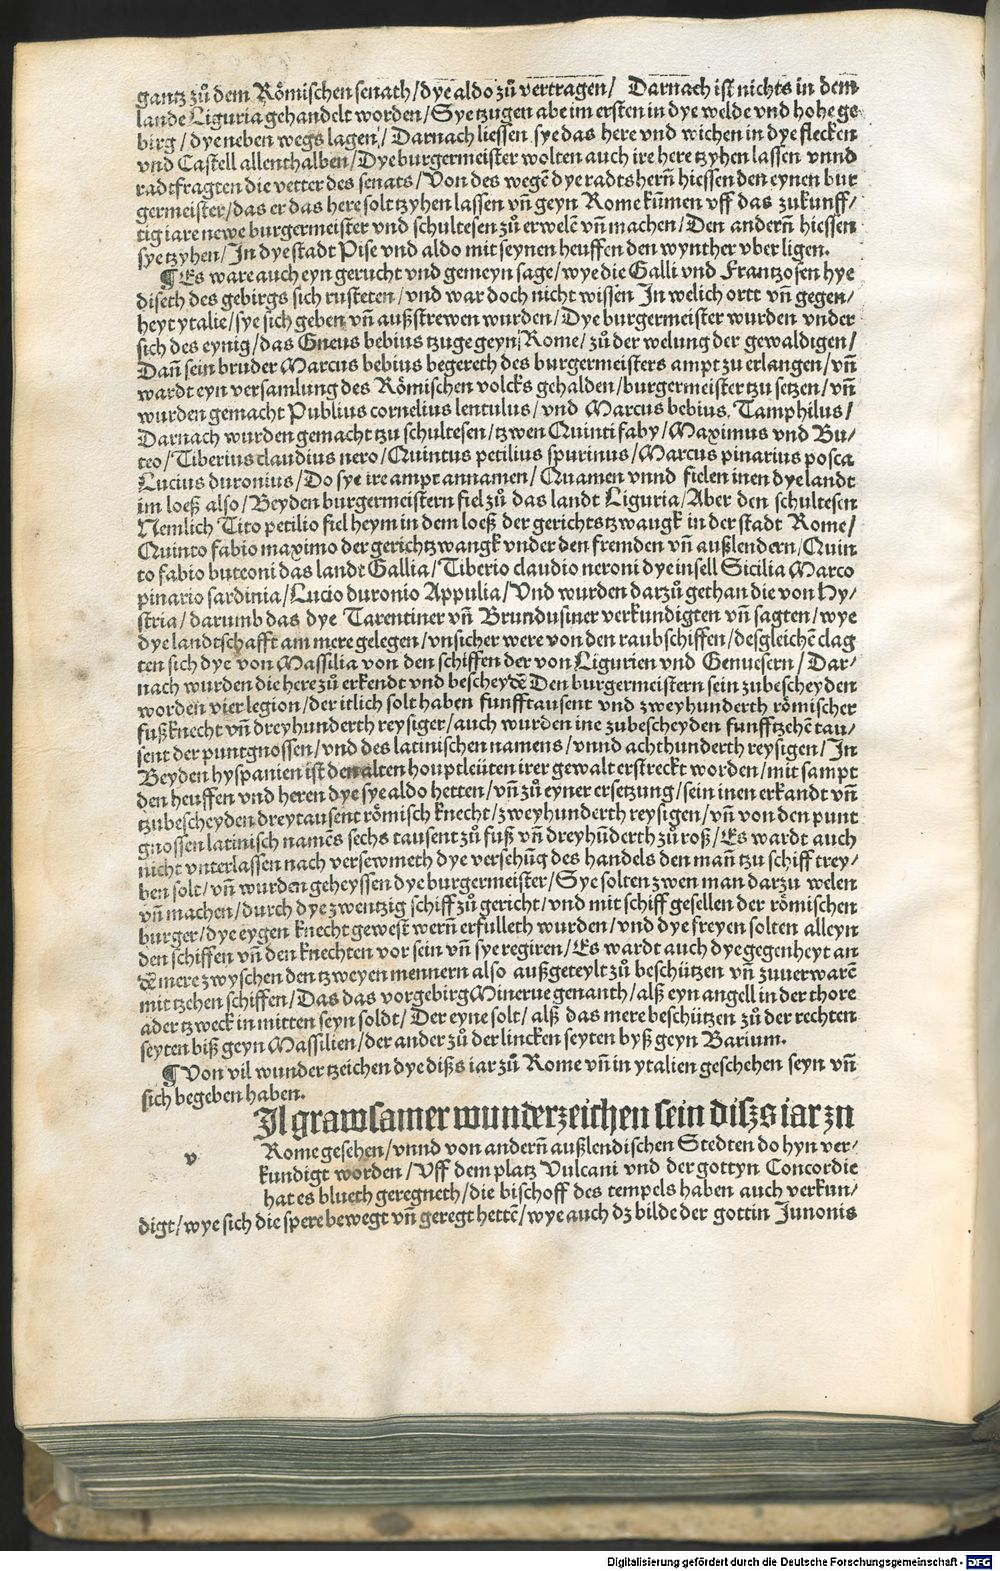 gantz zů dem Römischen senath/dye aldo zů vertragen/ Darnach ist nichts in dem
lande Liguria gehandelt worden/Sye tzugen abe im ersten in dye welde vnd hohe ge-
birg/dye neben wegs lagen/Darnach liessen sye das here vnd wichen in dye flecken
vnd Castell allenthalben/Dye burgermeister wolten auch ire here tzyhen lassen vnnd
radtfragten die vetter des senats/Von des wegē dye radtsherñ hiessen den eynen bur
germeister/das er das here solt tzyhen lassen vñ geyn Rome kũmen vff das zukunff/
tig iare newe burgermeister vnd schultesen zů erwelē vñ machen/Den anderñ hiessen
sye tzyhen/In dye stadt Pise vnd aldo mit seynen heuffen den wynther vber ligen.
¶Es ware auch eyn gerucht vnd gemeyn sage/wye die Galli vnd Frantzosen hye
diseth des gebirgs sich rusteten/vnd war doch nicht wissen In welich ortt vñ gegen/
heyt ytalie/sye sich geben vñ außstrewen wurden/Dye burgermeister wurden vnder
sich des eynig/das Gneus bebius tzuge geyn Rome/zů der welung der gewaldigen/
Dañ sein bruder Marcus bebius begereth des burgermeisters ampt zu erlangen/vñ
wardt eyn versamlung des Römischen volcks gehalden/burgermeister tzu setzen/vñ
wurden gemacht Publius cornelius lentulus/vnd Marcus bebius, Tamphilus/
Darnach wurden gemacht tzu schultesen/tzwen Quinti faby/Maximus vnd Bu/
teo/Tiberius claudius nero/Quintus petilius spurinus/Marcus pinarius posca
Lucius duronius/Do sye ire ampt annamen/Quamen vnnd fielen inen dye landt
im loeß also/Beyden burgermeistern fiel zů das landt Liguria/Aber den schultesen
Nemlich Tito petilio fiel heym in dem loeß der gerichtstzwangk in der stadt Rome/
Quinto fabio maximo der gerichtzwangk vnder den fremden vñ außlendern/Quin
to fabio buteoni das landt Gallia/Tiberio claudio neroni dye insell Sicilia Marco
pinario sardinia/Lucio duronio Appulia/Vnd wurden darzů gethan die von Hy/
stria/darumb das dye Tarentiner vñ Brundusiner verkundigten vñ sagten/wye
dye landtschafft am mere gelegen/vnsicher were von den raubschiffen/desgleichē clag
ten sich dye von Massilia von den schiffen der von Ligurien vnd Genuesern/Dar/
nach wurden die here zů erkendt vnd bescheydē Den burgermeistern sein zubescheyden
worden vier legion/der itlich solt haben funfftausent vnd zweyhunderth römischer
fußknecht vñ dreyhunderth reysiger/auch wurden ine zubescheyden funfftzehē tau/
sent der puntgnossen/vnd des latinischen namens/vnnd achthunderth reysigen/In
Beyden hyspanien ist den alten houptleüten irer gewalt erstreckt worden/mit sampt
den heuffen vnd heren dye sye aldo hetten/vñ zů eyner ersetzung/sein inen erkandt vñ
tzubescheyden dreytausent römisch knecht/zweyhunderth reysigen/vñ von den punt
gnossen latinisch namēs sechs tausent zů fuß vñ dreyhũderth zů roß/Es wardt auch
nicht vnterlassen nach versewmeth dye versehũg des handels den mañ tzu schiff trey/
ben solt/vñ wurden geheyssen dye burgermeister/Sye solten zwen man darzu welen
vñ machen/durch dye zwentzig schiff zů gericht/vnd mit schiff gesellen der römischen
burger/dye eygen knecht gewest werñ erfulleth wurden/vnd dye freyen solten alleyn
den schiffen vñ den knechten vor sein vñ sye regiren/Es wardt auch dye gegenheyt an
dē mere zwyschen den tzweyen mennern also außgeteylt zů beschützen vñ zuuerwarē
mit tzehen schiffen/Das das vorgebirg Minerue genanth/alß eyn angell in der thore
ader tzweck in mitten seyn soldt/Der eyne solt/alß das mere beschützen zů der rechten
seyten biß geyn Massilien/der ander zů der lincken seyten byß geyn Barium.
¶Von vil wunder tzeichen dye dißs iar zů Rome vñ in ytalien geschehen seyn vñ
sich begeben haben.
v Il grawsamer wunderzeichen sein diszs iar zu
Rome gesehen/vnnd von anderñ außlendischen Stedten do hyn ver-
kundigt worden/Vff dem platz Vulcani vnd der gottyn Concordie
hat es blueth geregneth/die bischoff des tempels haben auch verkun/
digt/wye sich die spere bewegt vñ geregt hettē/wye auch dz bilde der gottin Junonis
Digitalisierung gefördert durch die Deutsche Forschungsgemeinschaft - DFG